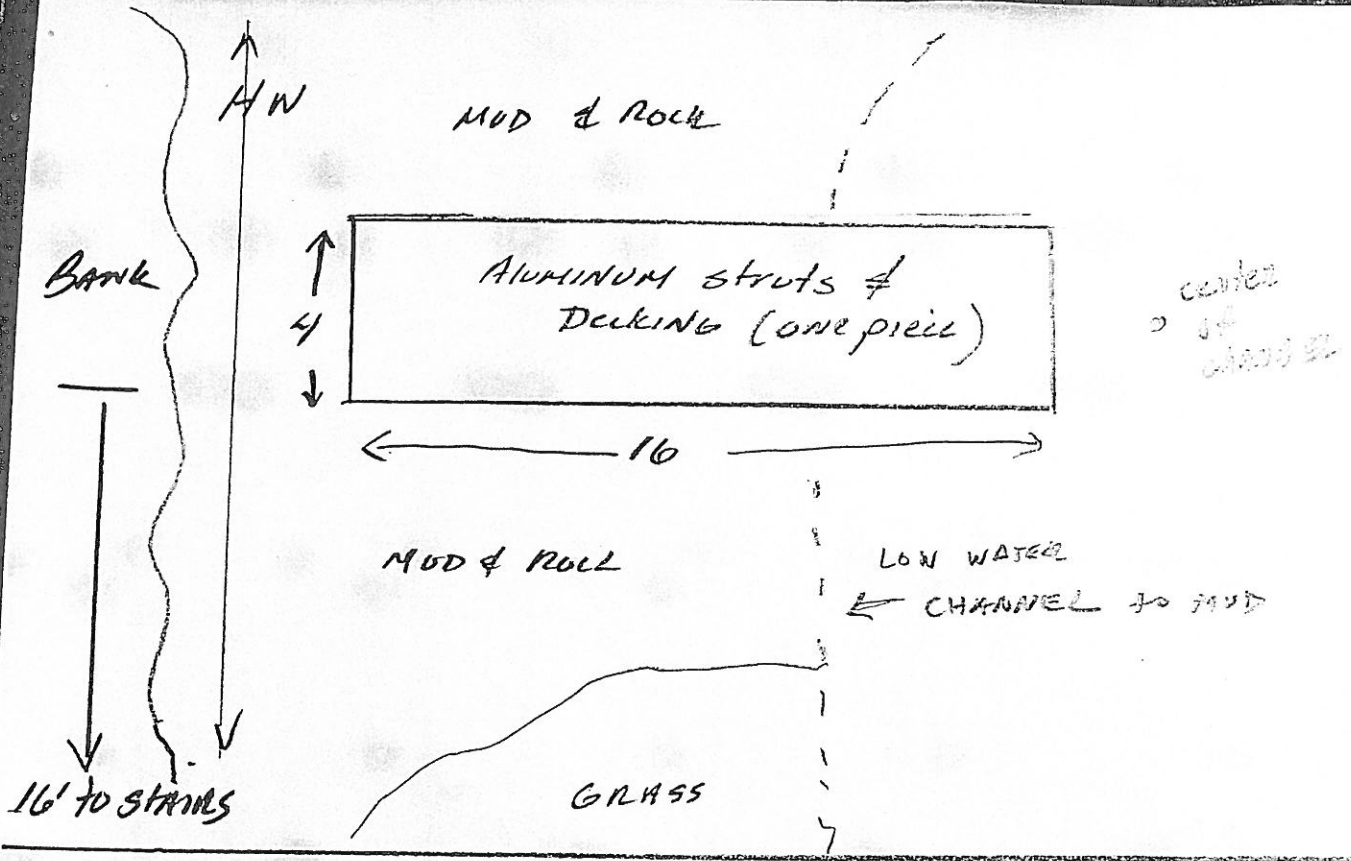 HW
MUD & ROCK
BANK
4
ALUMINUM struts &
DECKING (one piece)
center
of
channel
16
MUD & ROCK
LOW WATER
← CHANNEL to MUD
16' to STAIRS
GRASS